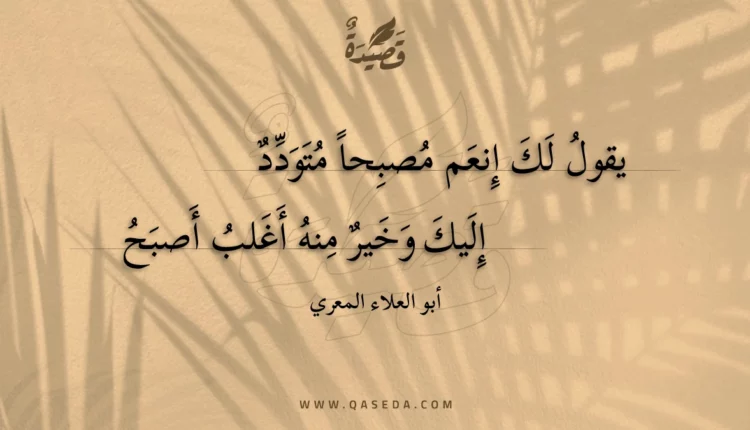 قَصِيْدَةٌ
يقولُ لَكَ إِنعَم مُصبِحاً مُتَوَدِّدٌ
إِلَيكَ وَخَيرٌ مِنهُ أَغَلبُ أَصبَحُ
أبو العلاء المعري
WWW.QASEDA.COM